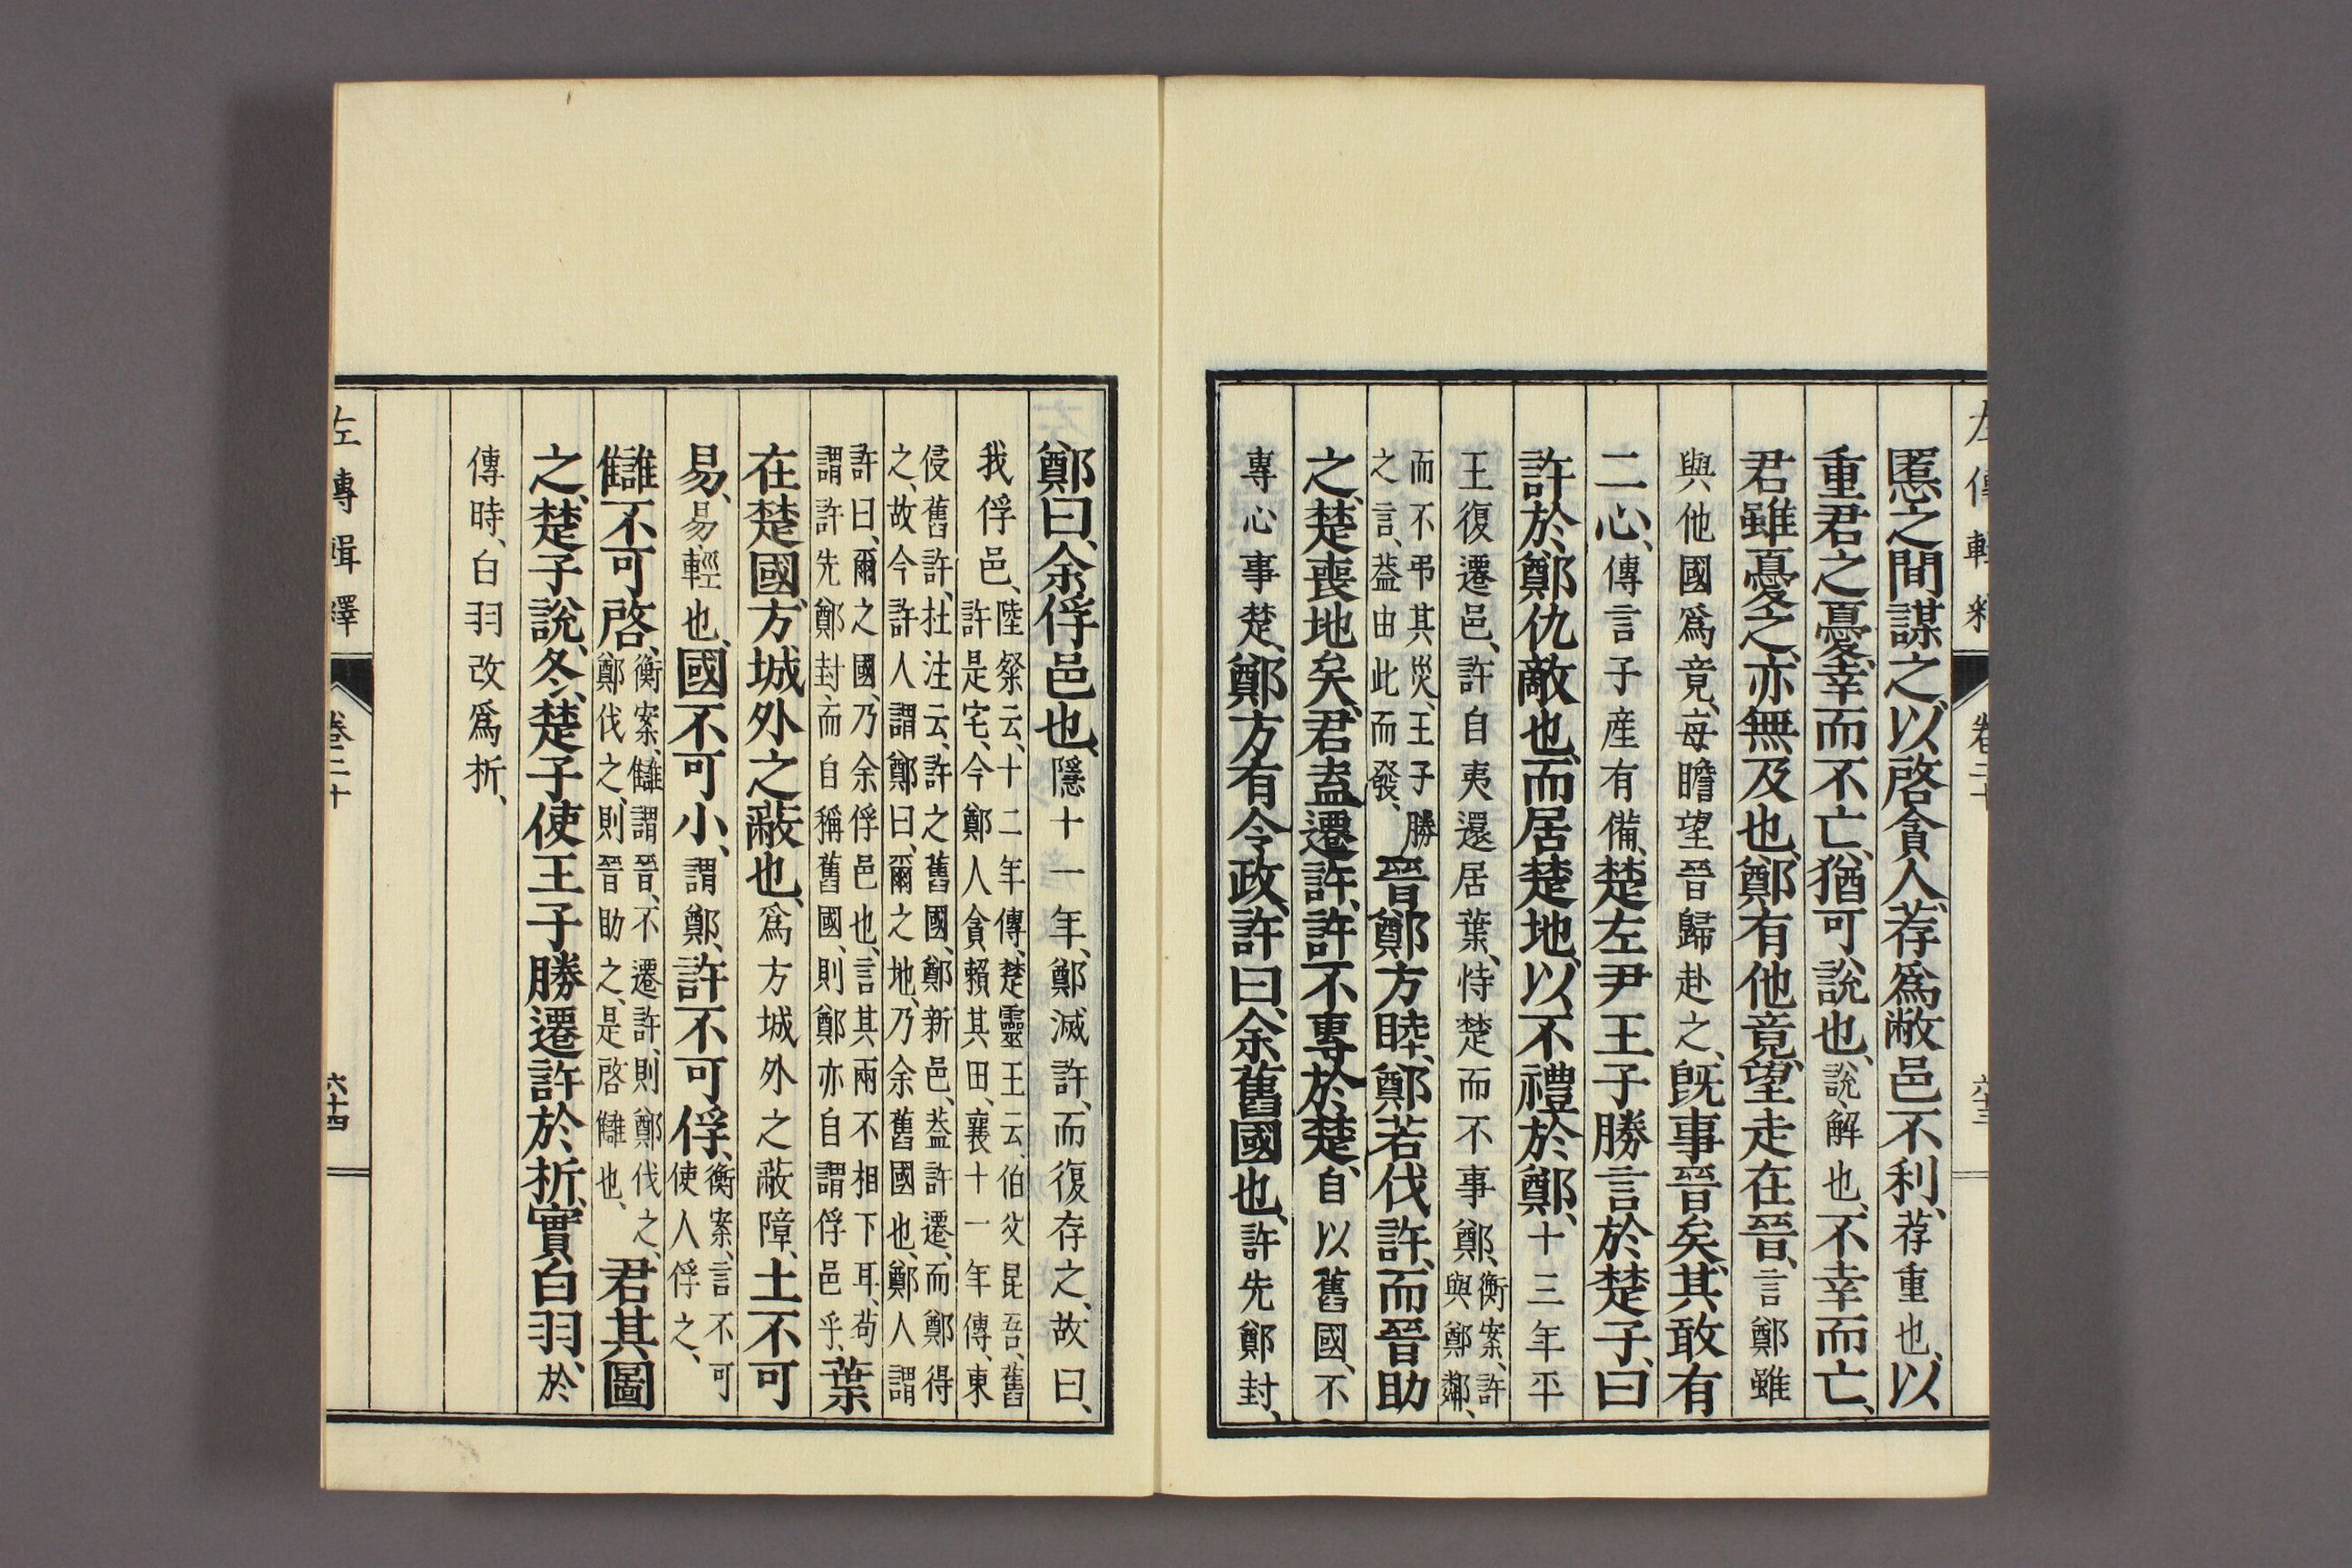 左傳輯釋 卷二十 六十三
慝之間謀之、以啓貪人、荐爲敝邑不利、荐重也、以
重君之憂、幸而不亡、猶可說也、說、解也、不幸而亡、
君雖憂之、亦無及也、鄭有他竟、望走在晉、言鄭雖
與他國爲竟、每瞻望晉歸赴之、旣事晉矣、其敢有
二心、傳言子産有備、楚左尹王子勝言於楚子、曰
許於鄭仇敵也、而居楚地、以不禮於鄭、十三年平
王復遷邑、許自夷還居葉、恃楚而不事鄭、衡案、許
與鄭鄰、
而不弔其災、王子勝
之言、葢由此而發、晉鄭方睦、鄭若伐許、而晉助
之、楚喪地矣、君盍遷許、許不專於楚、自以舊國、不
專心事楚、鄭方有令政、許曰、余舊國也、許先鄭封、
鄭曰、余俘邑也、隱十一年、鄭滅許、而復存之、故曰、
我俘邑、陸粲云、十二年傳、楚靈王云、伯父昆吾、舊
許是宅、今鄭人貪賴其田、襄十一年傳、東
侵舊許、杜注云、許之舊國、鄭新邑、葢許遷、而鄭得
之、故今許人謂鄭曰、爾之地、乃余舊國也、鄭人謂
許曰、爾之國、乃余俘邑也、言其兩不相下耳、苟
謂許先鄭封、而自稱舊國、則鄭亦自謂俘邑乎、葉
在楚國、方城外之蔽也、爲方城外之蔽障、土不可
易、易、輕也、國不可小、謂鄭、許不可俘、衡案、言不可
使人俘之、
讎不可啓、衡案、讎謂晉、不遷許、則鄭伐之、
鄭伐之、則晉助之、是啓讎也、君其圖
之、楚子說、冬、楚子使王子勝遷許於析、實白羽、於
傳時、白羽改爲析、
左傳輯釋 卷二十 六十四